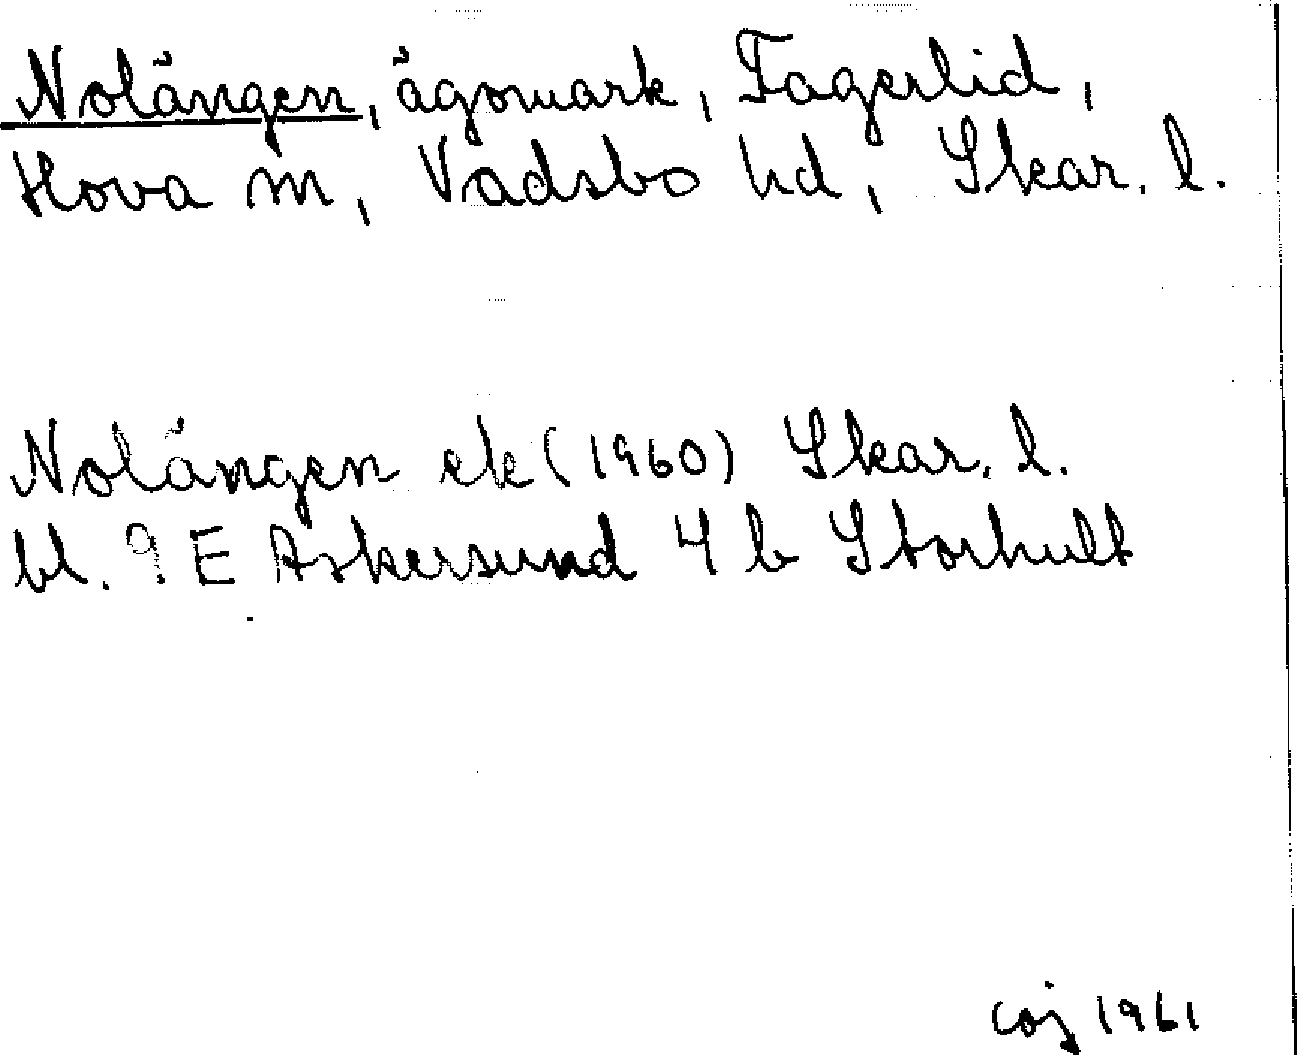 Nolängen, ägomark, Fagerlid,
Hova sn, Vadsbo hd, Skar. l.
Nolängen ek (1960) Skar. l.
bl. 9 E Askersund 4 b Storhult
1961